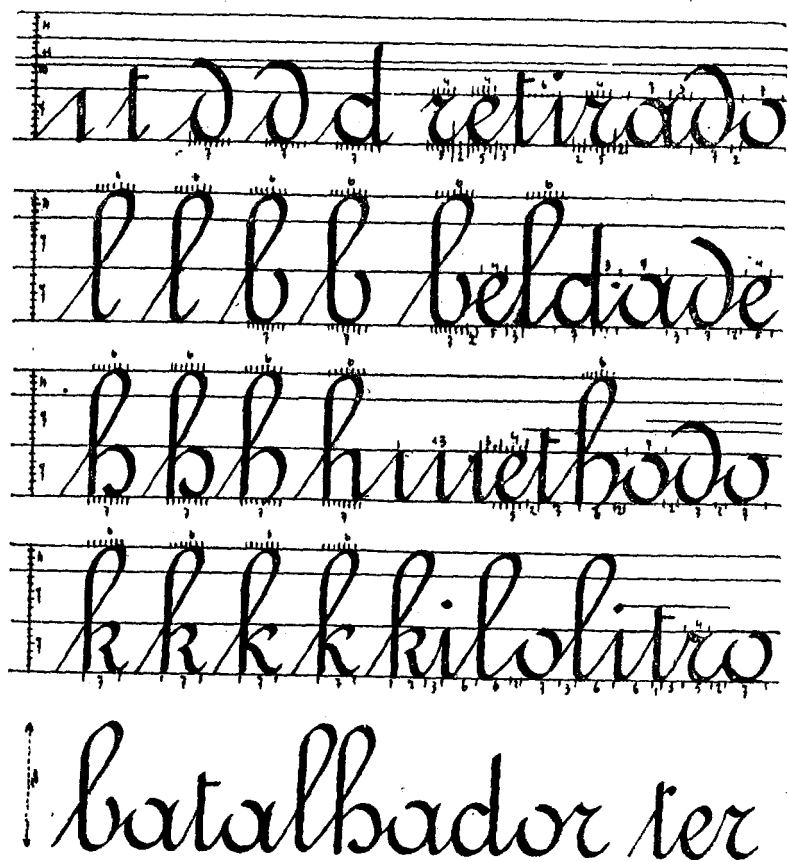 ı t d d d retirado
l l b b beldade
h h h h methodo
k k k k kilolitro
batalhador ter